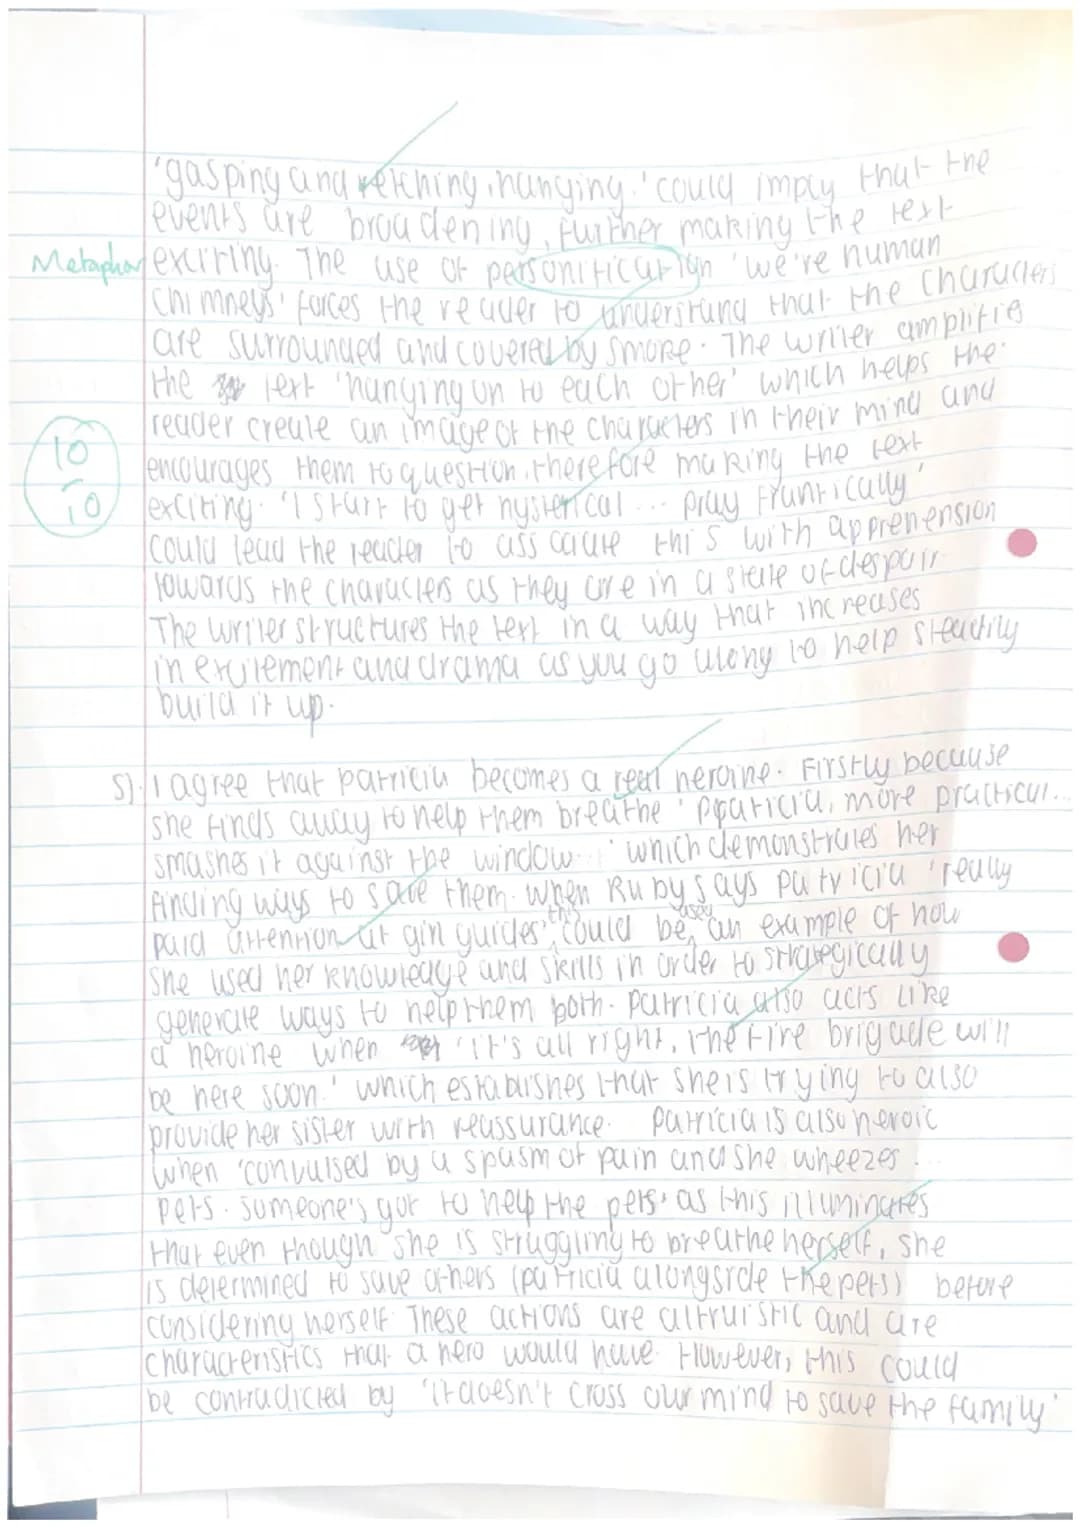 'gasping and retching, hanging.' could imply that the
events are broadening, further making the text
Metaphor exciting. The use of personification 'we're human
chimneys' forces the reader to understand that the characters
are surrounded and covered by smoke. The writer amplifies
the text 'hanging on to each other' which helps the
reader create an image of the characters in their mind and
10/10
encourages them to question, therefore making the text
exciting. 'I start to get hysterical... pray frantically'
could lead the reader to associate this with apprehension
towards the characters as they are in a state of despair.
The writer structures the text in a way that increases
in excitement and drama as you go along to help steadily
build it up.
5). I agree that patricia becomes a real heroine. Firstly because
she finds away to help them breathe 'patricia, more practical...
smashes it against the window...' which demonstrates her
finding ways to save them. When Ruby says patricia 'really
paid attention at girl guides' this could be used an example of how
she used her knowledge and skills in order to strategically
generate ways to help them both. Patricia also acts like
a heroine when 'it's all right, the fire brigade will
be here soon.' which establishes that she is trying to also
provide her sister with reassurance. Patricia is also heroic
when 'convulsed by a spasm of pain and she wheezes...
pets. Someone's got to help the pets' as this illuminates
that even though she is struggling to breathe herself, she
is determined to save others (patricia alongside the pets) before
considering herself. These actions are altruistic and are
characteristics that a hero would have. However, this could
be contradicted by 'it doesn't cross our mind to save the family'